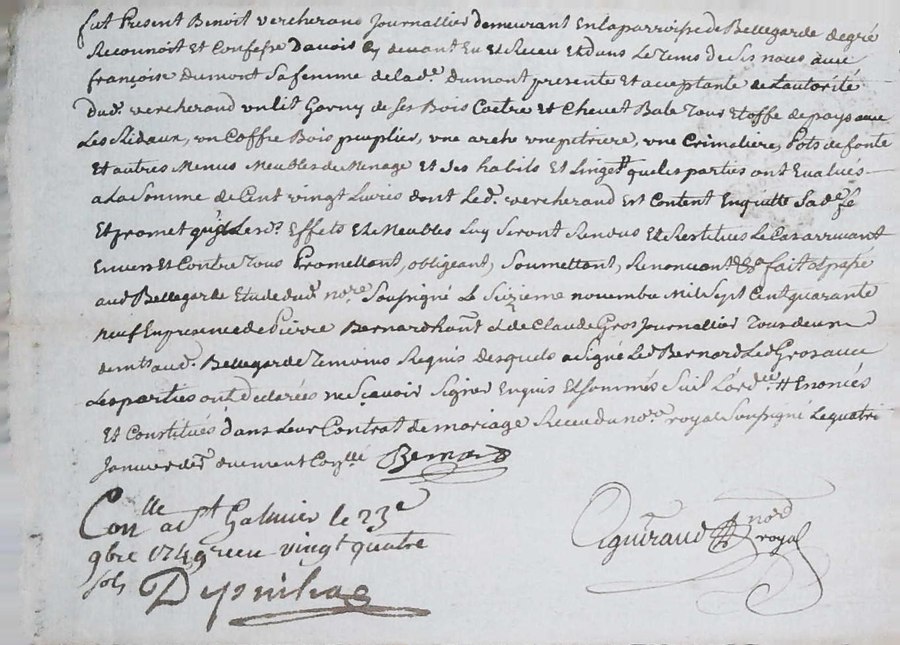 fut Present Benoit vercherand Journallier demeurant En la parroisse de Bellegarde de gré
Reconnoit et Confesse D'avois cy devant Eu Et Receu Et dans Le Tems de ses noces avec
françoise dumont Sa femme de lad.e dumont presente et acceptante de L'autorité
dud. vercherand un lit Garny de ses Bois Coetre et Chevet Bale Tous Etoffe de pays avec
Les Rideaux, un Coffre Bois peuplier, une arche une petriere, une Crimaliere, Pots de fonte
Et autres Menus Meubles de Menage et ses habils Et Linges # que les parties ont Evalués
a La Somme de Cent vingt Livres dont Led. vercherand est Content En quitte Sad.e fe
Et promet que Lesd. Effets Et Meubles Luy Seront Rendus Et Restitués Le Cas arrivant
Envers Et Contre Tous Promettant, obligeant, Soumettant, Renonceant &c fait et passé
aud Bellegarde Etude du no.re Soussigné Le Sizieme novembre Mil Sept Cent quarante
neuf En presence de Pierre Bernard et de Claude Gros Journallier Tous deux
demts aud. Bellegarde Temoins Requis desquels a Signé Led Bernard Led Gros avec
Les parties ont declarées ne Sçavoir Signer Enquis Et Sommés Suil L'ord.ce # Enoncés
Et Constitués dans Leur Contrat de mariage Receu du no.re royal Soussigné Le quatri
Janvier der duement Con.lle Bernard
Con.lle a St Galmier le 23e
9bre 1749 receu vingt quatre
sols
Aguiraud nore
royal